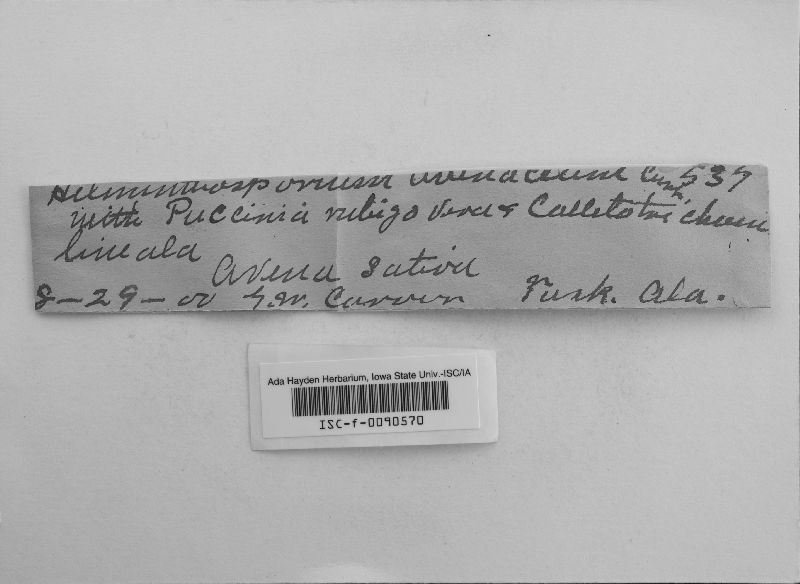 Helminthosporium avenaceum Curt 537
with Puccinia rubigo vera & Colletotrichum
lineola
Avena Sativa
8-29-00 G.W. Carver Tusk. Ala.
Ada Hayden Herbarium, Iowa State Univ.-ISC/IA
ISC-f-0090570